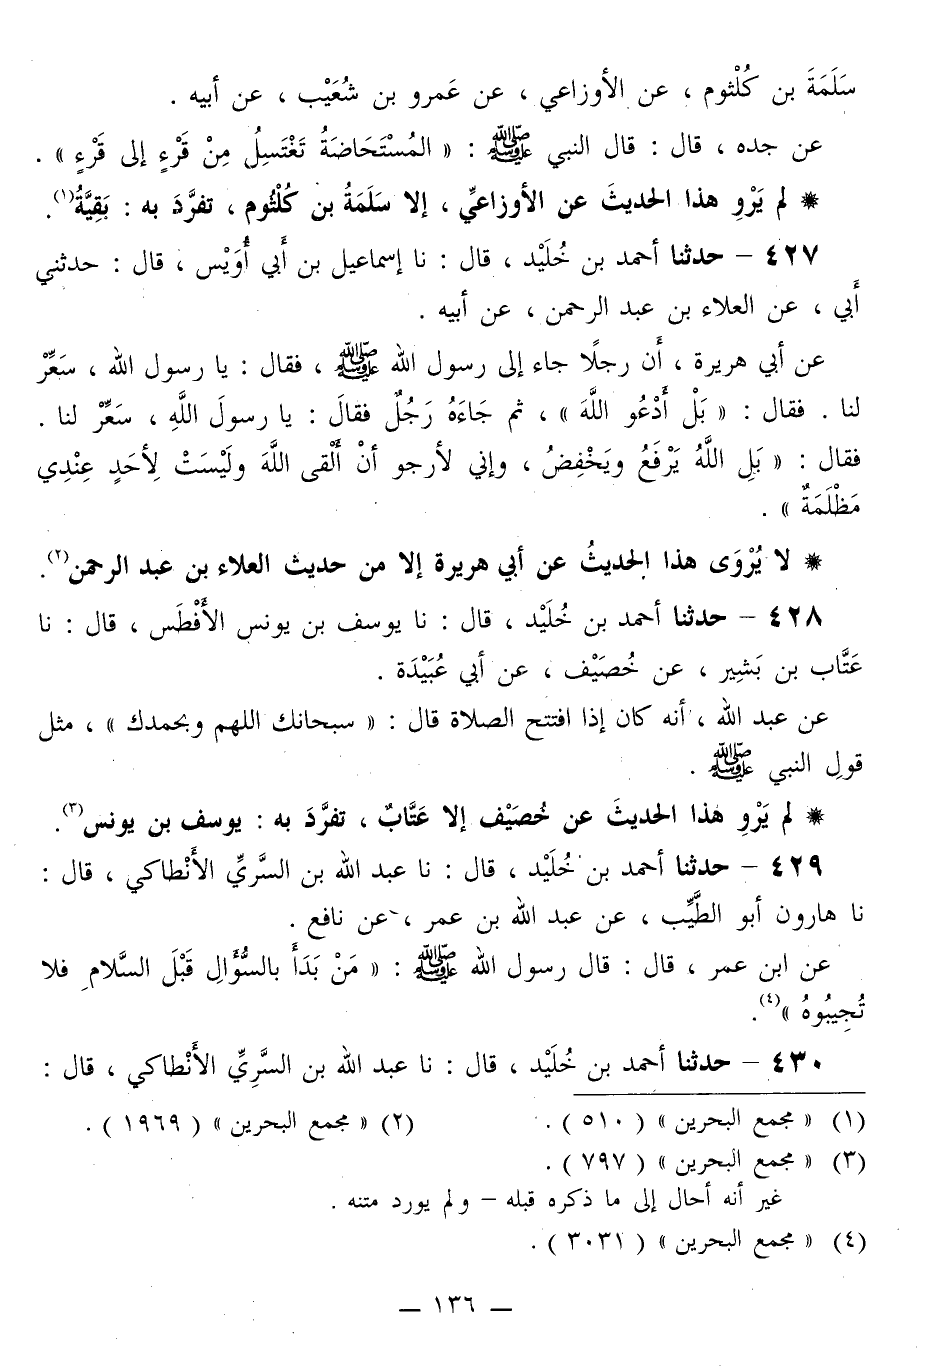 سَلَمَةَ بن كُلْثوم ، عن الأوزاعي ، عن عَمرو بن شُعَيْب ، عن أبيه .
عن جده ، قال : قال النبي ﷺ : « المُسْتَحَاضَةُ تَغْتَسِلُ مِنْ قَرْءٍ إلى قَرْءٍ » .
* لم يَرْوِ هذا الحديثَ عن الأوزاعيِّ ، إلا سَلَمَةُ بن كُلْثُوم ، تفرَّدَ به : بَقِيَّةُ(١).
٤٢٧ – حدثنا أحمد بن خُلَيْد ، قال : نا إسماعيل بن أَبي أُوَيْس ، قال : حدثني
أَبي ، عن العلاء بن عبد الرحمن ، عن أبيه .
عن أبي هريرة ، أَن رجلًا جاء إلى رسول الله ﷺ ، فقال : يا رسول الله ، سَعِّرْ
لنا . فقال : « بَلْ أَدْعُو اللَّهَ » ، ثم جَاءَهُ رَجُلٌ فقالَ : يا رسولَ اللَّهِ ، سَعِّرْ لنا .
فقال : « بَلِ اللَّهُ يَرْفَعُ ويَخْفِضُ ، وإني لأرجو أنْ أَلْقى اللَّهَ ولَيْسَتْ لِأَحَدٍ عِنْدِي
مَظْلَمَةٌ » .
* لا يُرْوَى هذا الحديثُ عن أبي هريرة إلا من حديث العلاء بن عبد الرحمن(٢).
٤٢٨ – حدثنا أحمد بن خُلَيْد ، قال : نا يوسف بن يونس الأَفْطَس ، قال : نا
عَتَّاب بن بَشِير ، عن خُصَيْف ، عن أبي عُبَيْدَة .
عن عبد الله ، أنه كان إذا افتتح الصلاة قال : « سبحانك اللهم وبحمدك » ، مثل
قولِ النبي ﷺ .
* لم يَرْوِ هذا الحديثَ عن خُصَيْف إلا عَتَّابٌ ، تفرَّدَ به : يوسف بن يونس(٣).
٤٢٩ – حدثنا أحمد بن خُلَيْد ، قال : نا عبد الله بن السَّريِّ الأَنْطاكي ، قال :
نا هارون أبو الطَّيِّب ، عن عبد الله بن عمر ، عن نافع .
عن ابن عمر ، قال : قال رسول الله ﷺ : « مَنْ بَدَأَ بالسُّؤَالِ قَبْلَ السَّلامِ فلا
تُجِيبُوهُ »(٤).
٤٣٠ – حدثنا أحمد بن خُلَيْد ، قال : نا عبد الله بن السَّرِيِّ الأَنْطاكي ، قال :
(١) « مجمع البحرين » ( ٥١٠ ) . (٢) « مجمع البحرين » ( ١٩٦٩ ) .
(٣) « مجمع البحرين » ( ٧٩٧ ) .
غير أنه أحال إلى ما ذكره قبله – ولم يورد متنه .
(٤) « مجمع البحرين » ( ٣٠٣١ ) .
— ١٣٦ —